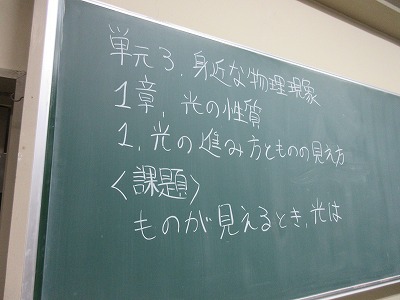 単元3.身近な物理現象
1章.光の性質
1.光の進み方とものの見え方
〈課題〉
ものが見えるとき,光は